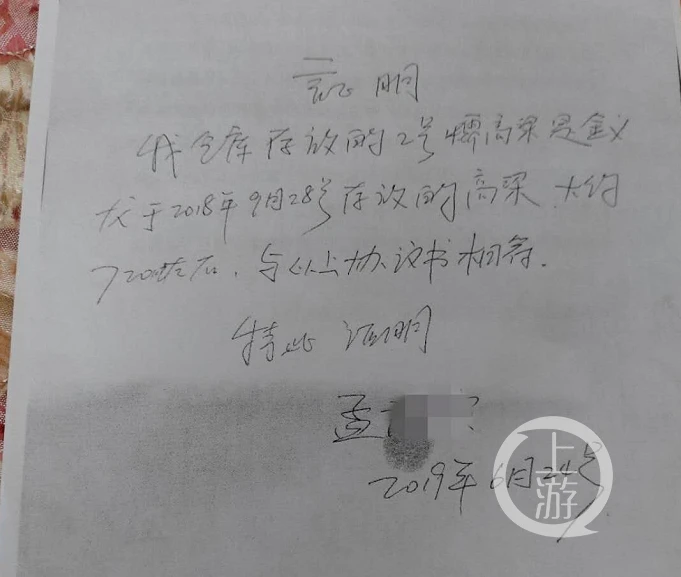 证明
我仓库存放的2号糯高粱是金义
于2018年9月28号存放的高粱大约
720吨左右，与以上协议书相符.
特此证明
孟
2019年6月24号
上游